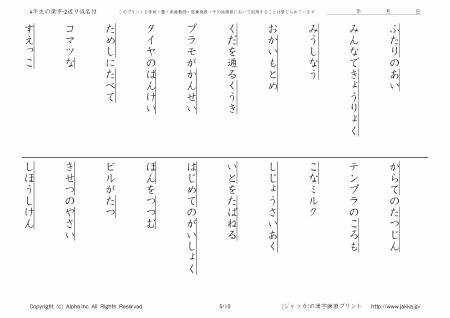 4年生の漢字-2送り仮名付
このプリントを学校・塾・家庭教師・医療機関・その他施設において利用することは禁じられています
年 月 日
ふたりのあい
みんなできょうりょく
みうしなう
おかいもとめ
くだを通るくうき
プラモがかんせい
タイヤのはんけい
ためしにたべて
コマツな
すえっこ
からてのたつじん
テンプラのころも
こなミルク
しじょうさいあく
いとをたばねる
はじめてのがいしょく
ほんをつつむ
ビルがたつ
きせつのやさい
しほうしけん
Copyright (c) Alpha.Inc All Rights Reserved.
5/10
[ジャッカ]の漢字練習プリント http://www.jakka.jp/